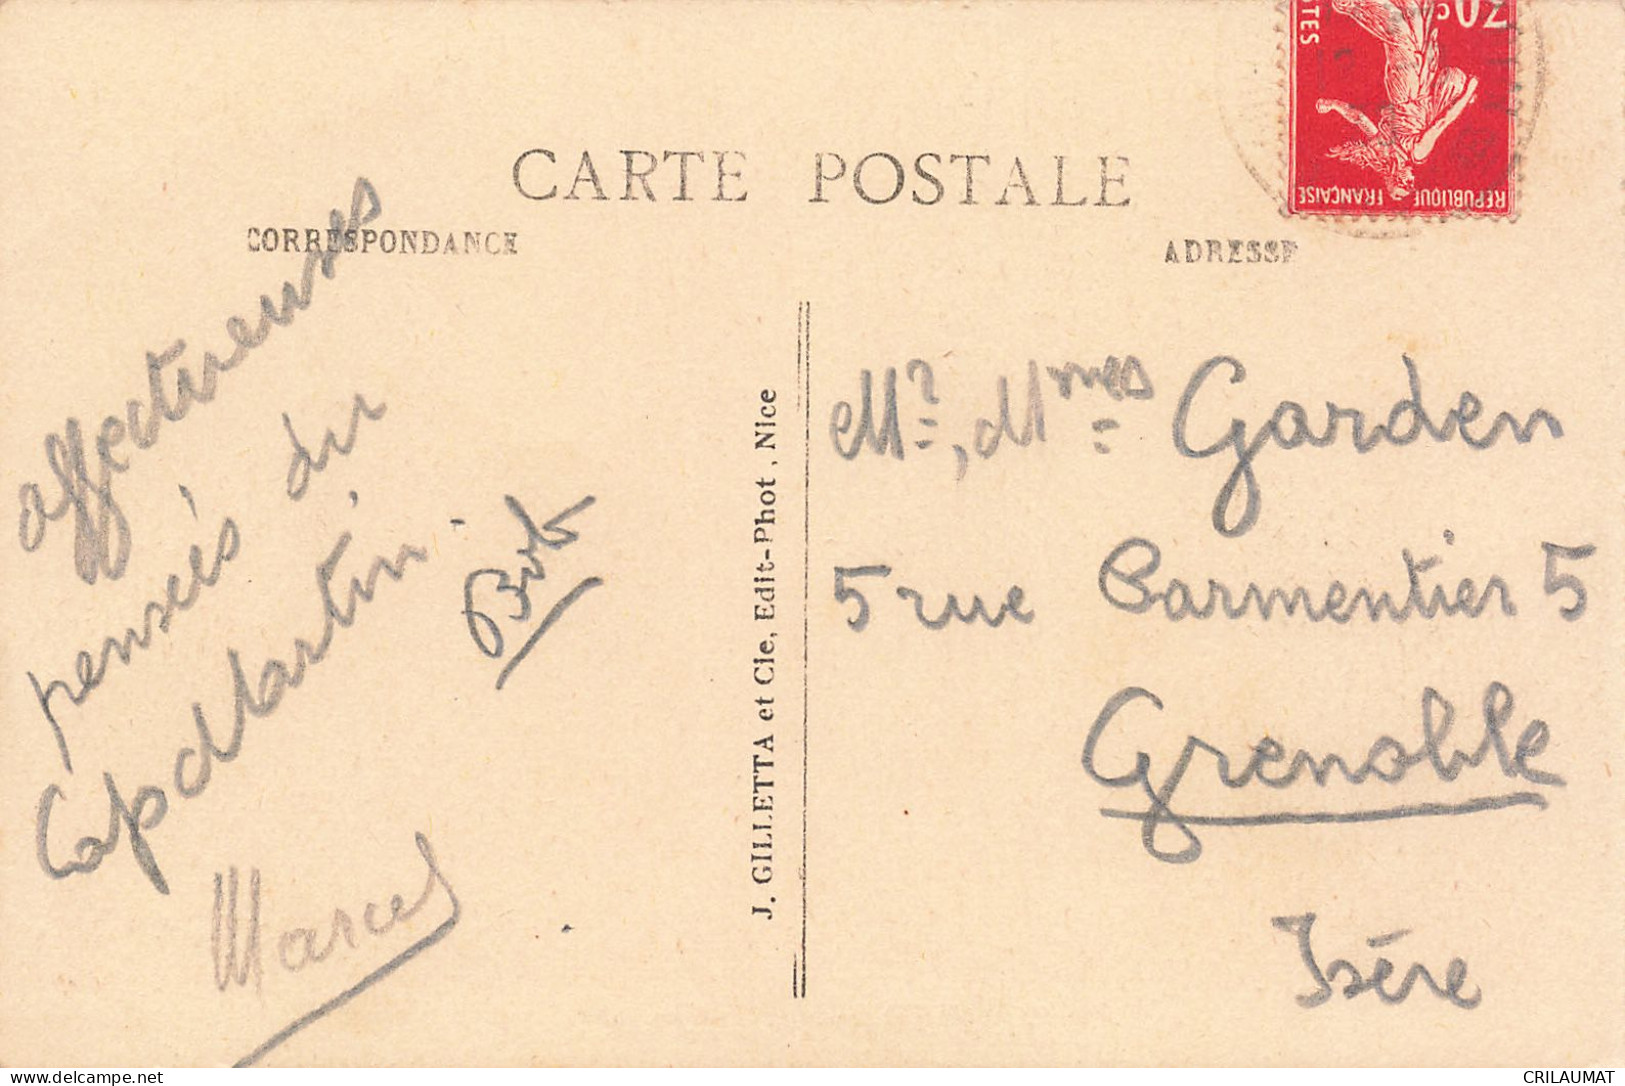 CARTE POSTALE
CORRESPONDANCE
ADRESSE
affectueuses
pensées du
Cap Martin
Marcel
J. GILLETTA et Cie, Edit-Phot, Nice
Mr, Mmes Garden
5 rue Parmentier 5
Grenoble
Isère
30c
TES
REPUBLIQUE FRANÇAISE
delcampe.net
CRILAUMAT